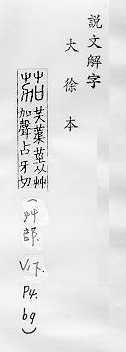 說文解字
大徐本
茄 芙蕖莖从艸
加聲古牙切
(艸部. V1下. P4. b9)